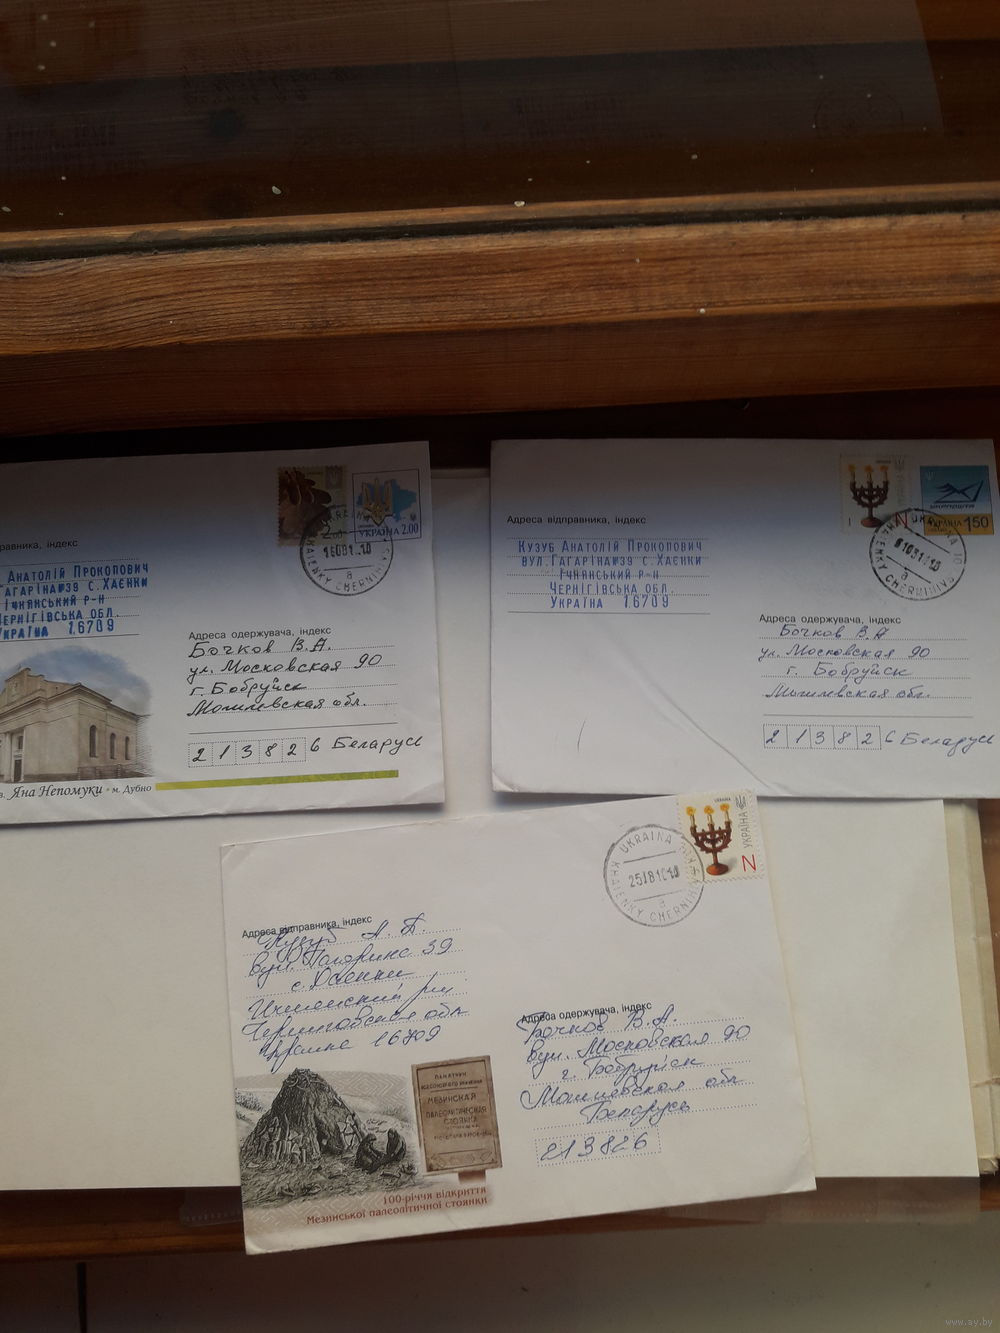 равника, індекс
Анатолій Прокопович
Гагаріна№39 с.Хаєнки
Ічнянський р-н
Чернігівська обл.
Україна 16709
2.00
УКРАЇНА 2.00
UKRAINA
KHAIENKY CHERNIHIVS
а
Адреса одержувача, індекс
Бочков В.А.
ул. Московская 90
г. Бобруйск
Могилевская обл.
213826 Беларусь
в. Яна Непомуки • м. Дубно
Адреса відправника, індекс
Кузуб Анатолій Прокопович
вул.Гагаріна№39 с.Хаєнки
Ічнянський р-н
Чернігівська обл.
Україна 16709
N
УКРАЇНА 1.50
UKRAINA
KHAIENKY CHERNIHIVS
а
Адреса одержувача, індекс
Бочков В.А
ул. Московская 90
г. Бобруйск
Могилевская обл.
213826 Беларусь
UKRAINA
KHAIENKY CHERNIHIVS
а
УКРАЇНА
N
Адреса відправника, індекс
Кузуб А. П.
вул. Гагарина 39
с. Хаенки
Ичнянский р-н
Черниговская обл
Украина 16709
Адреса одержувача, індекс
Бочков В.А.
вул. Московская 90
г. Бобруйск
Могилевская обл
Беларусь
213826
ПАМЯТНИК
МЕЗИНСКАЯ
ПАЛЕОЛИТИЧЕСКАЯ
СТОЯНКА
100-річчя відкриття
Мезинської палеолітичної стоянки
www.ay.by